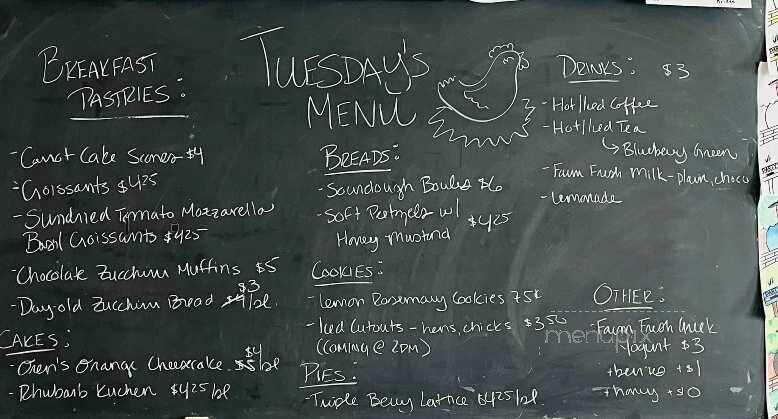 TUESDAY'S
MENU
BREAKFAST
PASTRIES:
- Carrot Cake Scones $4
- Croissants $4.25
- Sundried Tomato Mozzarella
Basil Croissants $4.25
- Chocolate Zucchini Muffins $5
- Day-old Zucchini Bread $3/sl.
CAKES:
- Oren's Orange Cheesecake $4 $5/sl
- Rhubarb Kuchen $4.25/sl
BREADS:
- Sourdough Boules $6
- Soft Pretzels w/
Honey Mustard $4.25
COOKIES:
- Lemon Rosemary Cookies 75¢
- Iced Cutouts - hens, chicks $3.50
(COMING @ 2PM)
PIES:
- Triple Berry Lattice $4.25/sl.
DRINKS: $3
- Hot/Iced Coffee
- Hot/Iced Tea
↳ Blueberry Green
- Farm Fresh Milk - Plain, choco
- Lemonade
OTHER:
- Farm Fresh Greek
Yogurt $3
+ berries + $1
+ honey + $0
menupix